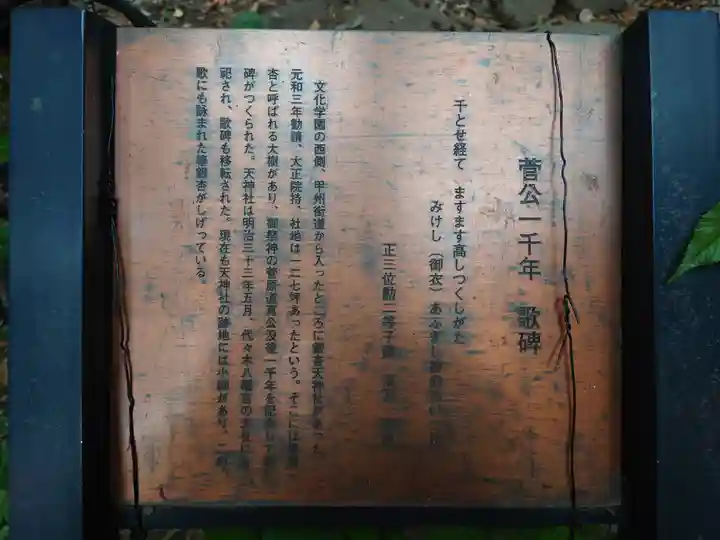 菅公一千年 歌碑
千とせ経て ますます高しつくしがた
みけし（御衣）あふぎし
正三位勳二等子爵
文化学園の西側、甲州街道から入ったところに銀杏天神社があった
元和三年勧請、大正院持、社地は一二七坪あったという。そこには
杏と呼ばれる大樹があり、御祭神の菅原道真公没後一千年を記念して
碑がつくられた。天神社は明治三十三年五月、代々木八幡宮の
祀され、歌碑も移転された。現在も天神社の跡地には小祠があり、
歌にも詠まれた箒銀杏がしげっている。